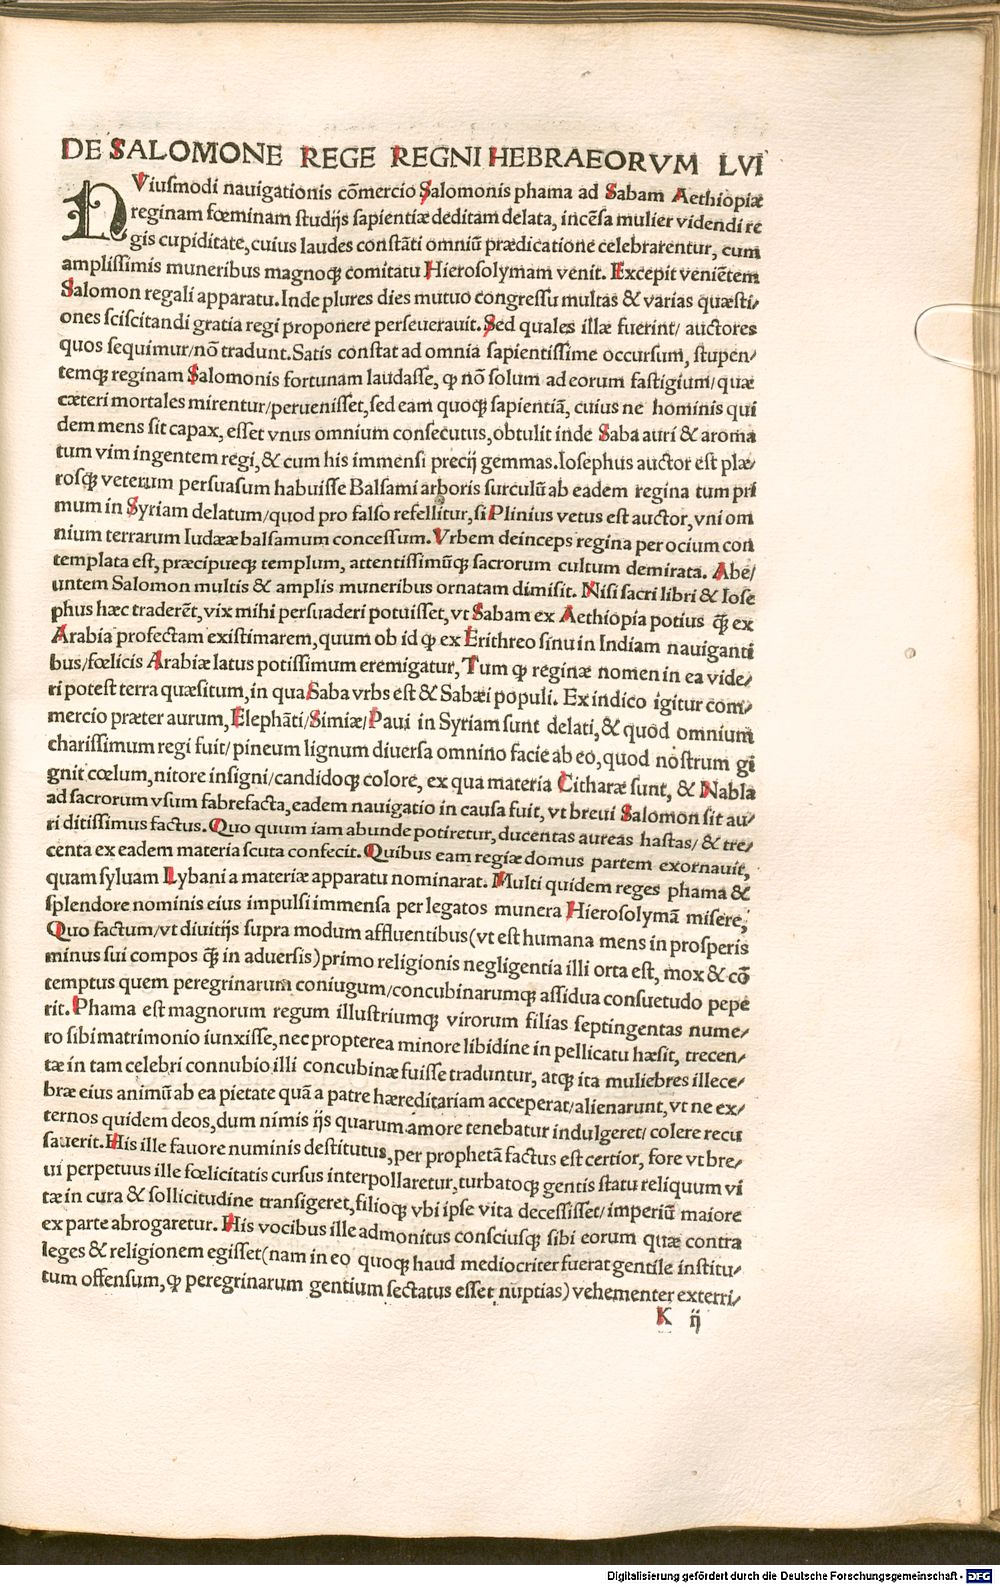 DE SALOMONE REGE REGNI HEBRAEORVM LVI
HViusmodi nauigationis cōmercio Salomonis phama ad Sabam Aethiopiæ
reginam fœminam studijs sapientiæ deditam delata, incēsa mulier videndi re
gis cupiditate, cuius laudes constāti omniū prædicatione celebrarentur, cum
amplissimis muneribus magnoqꝫ comitatu Hierosolymam venit. Excepit veniētem
Salomon regali apparatu. Inde plures dies mutuo congressu multas & varias quæsti/
ones sciscitandi gratia regi proponere perseuerauit. Sed quales illæ fuerint/ auctores
quos sequimur/nō tradunt. Satis constat ad omnia sapientissime occursum, stupen/
temqꝫ reginam Salomonis fortunam laudasse, ꝙ nō solum ad eorum fastigium/quæ
cæteri mortales mirentur/peruenisset, sed eam quoqꝫ sapientiā, cuius ne hominis qui
dem mens sit capax, esset vnus omnium consecutus, obtulit inde Saba auri & aroma
tum vim ingentem regi, & cum his immensi precij gemmas. Iosephus auctor est plæ/
rosqꝫ veterum persuasum habuisse Balsami arboris surculū ab eadem regina tum pri
mum in Syriam delatum/quod pro falso refellitur, si Plinius vetus est auctor, vni om
nium terrarum Iudææ balsamum concessum. Vrbem deinceps regina per ocium con
templata est, præcipueqꝫ templum, attentissimūqꝫ sacrorum cultum demirata. Abe/
untem Salomon multis & amplis muneribus ornatam dimisit. Nisi sacri libri & Iose
phus hæc traderēt, vix mihi persuaderi potuisset, vt Sabam ex Aethiopia potius ꝗ̄ ex
Arabia profectam existimarem, quum ob id ꝙ ex Erithreo sinu in Indiam nauiganti
bus/fœlicis Arabiæ latus potissimum eremigatur, Tum ꝙ reginæ nomen in ea vide/
ri potest terra quæsitum, in qua Saba vrbs est & Sabæi populi. Ex indico igitur com/
mercio præter aurum, Elephāti/Simiæ/Paui in Syriam sunt delati, & quod omnium
charissimum regi fuit/pineum lignum diuersa omnino facie ab eo, quod nostrum gi
gnit cœlum, nitore insigni/candidoqꝫ colore, ex qua materia Citharæ sunt, & Nabla
ad sacrorum vsum fabrefacta, eadem nauigatio in causa fuit, vt breui Salomon sit au/
ri ditissimus factus. Quo quum iam abunde potiretur, ducentas aureas hastas/ & tre/
centa ex eadem materia scuta confecit. Quibus eam regiæ domus partem exornauit,
quam syluam Lybani a materiæ apparatu nominarat. Multi quidem reges phama &
splendore nominis eius impulsi immensa per legatos munera Hierosolymā misere,
Quo factum/vt diuitijs supra modum affluentibus (vt est humana mens in prosperis
minus sui compos ꝗ̄ in aduersis) primo religionis negligentia illi orta est, mox & cō
temptus quem peregrinarum coniugum/concubinarumqꝫ assidua consuetudo pepe
rit. Phama est magnorum regum illustriumqꝫ virorum filias septingentas nume/
ro sibi matrimonio iunxisse, nec propterea minore libidine in pellicatu hæsit, trecen/
tæ in tam celebri connubio illi concubinæ fuisse traduntur, atqꝫ ita muliebres illece/
bræ eius animū ab ea pietate quā a patre hæreditariam acceperat/alienarunt, vt ne ex/
ternos quidem deos, dum nimis ijs quarum amore tenebatur indulgeret/ colere recu
sauerit. His ille fauore numinis destitutus, per prophetā factus est certior, fore vt bre/
ui perpetuus ille fœlicitatis cursus interpollaretur, turbatoqꝫ gentis statu reliquum vi
tæ in cura & sollicitudine transigeret, filioqꝫ vbi ipse vita decessisset/imperiū maiore
ex parte abrogaretur. His vocibus ille admonitus consciusqꝫ sibi eorum quæ contra
leges & religionem egisset (nam in eo quoqꝫ haud mediocriter fuerat gentile institu/
tum offensum, ꝙ peregrinarum gentium sectatus esset nuptias) vehementer exterri/
K ij
Digitalisierung gefördert durch die Deutsche Forschungsgemeinschaft - DFG